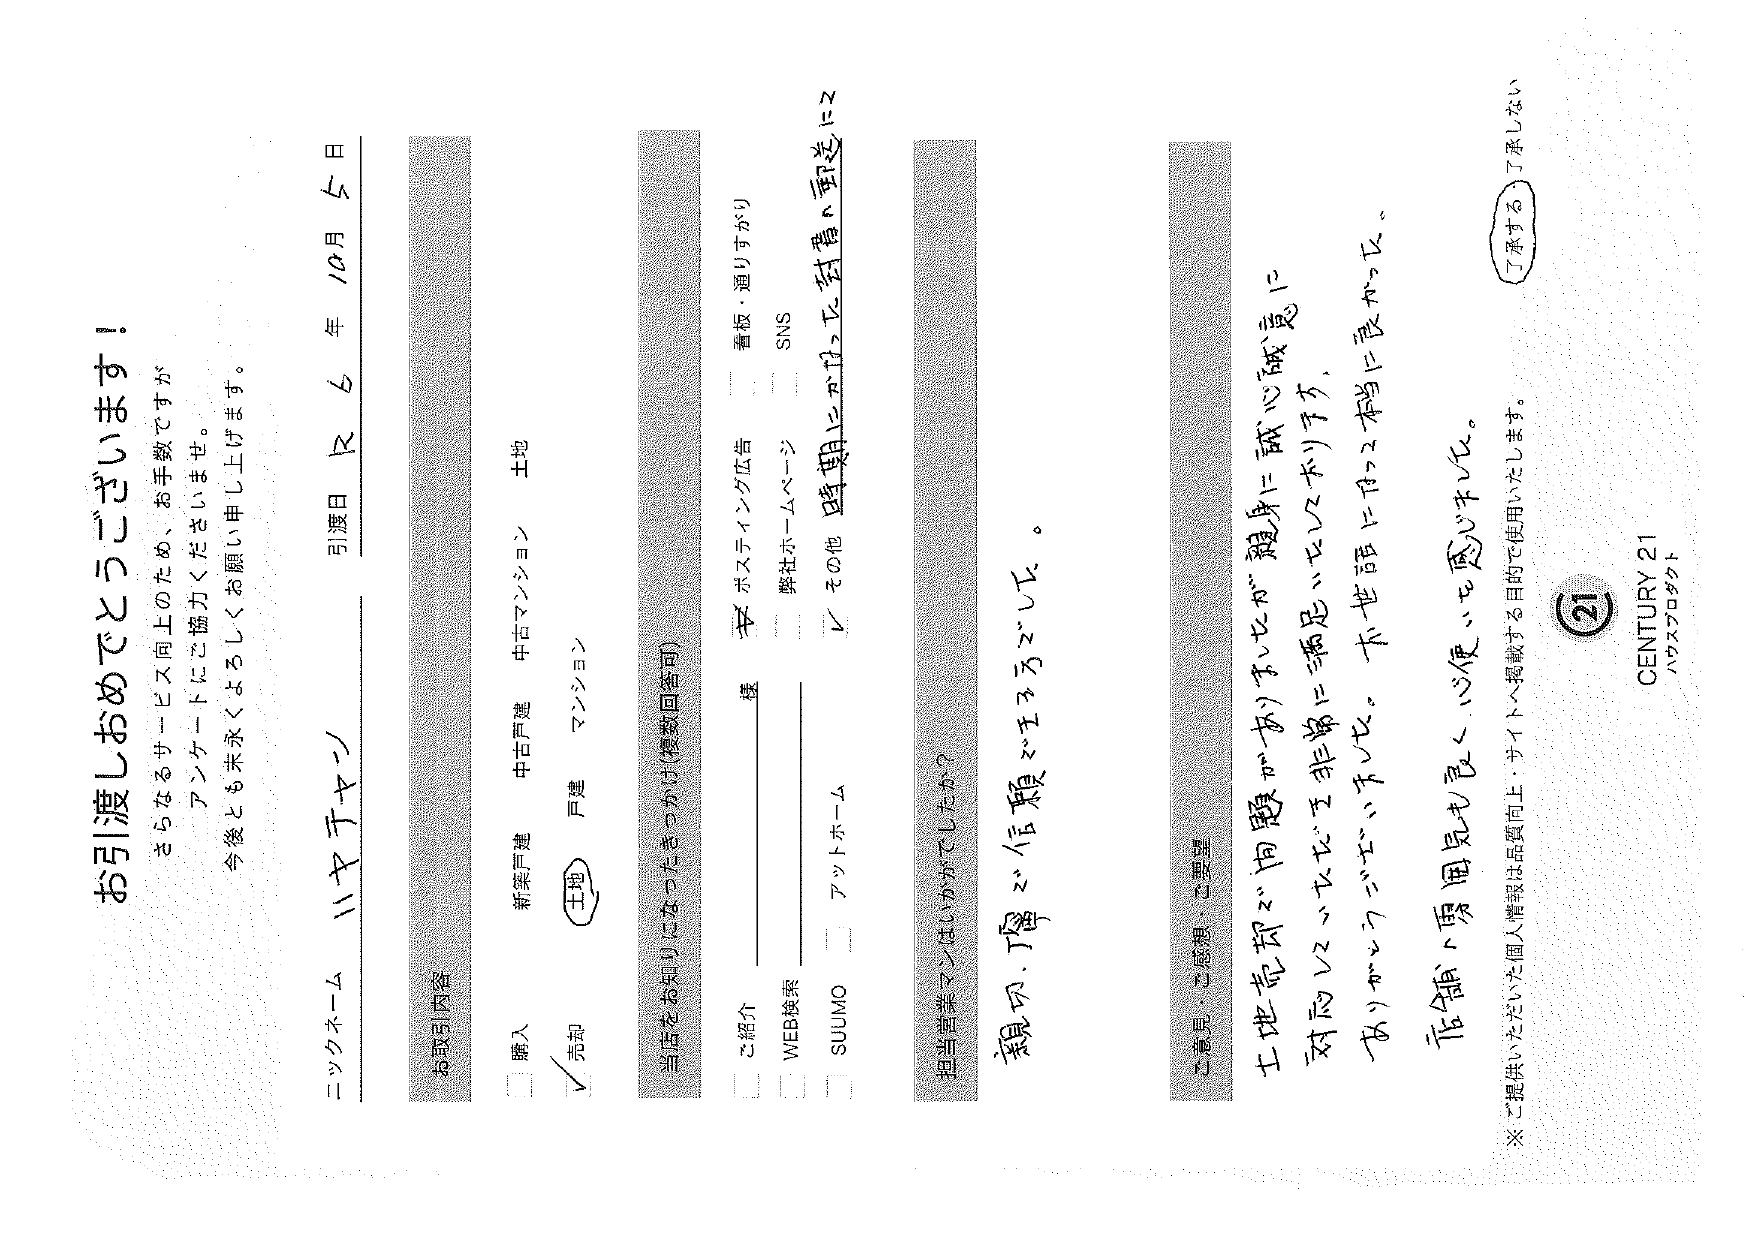 お引渡しおめでとうございます！
さらなるサービス向上のため、お手数ですが
アンケートにご協力くださいませ。
今後とも末永くよろしくお願い申し上げます。
ニックネーム ハヤチャン 引渡日 R 6 年 10月 5 日
お取引内容
購入 新築戸建 中古戸建 中古マンション 土地
✓ 売却 土地 戸建 マンション
当店をお知りになったきっかけ(複数回答可)
ご紹介 様 ポスティング広告 看板・通りすがり
WEB検索 弊社ホームページ SNS
SUUMO アットホーム ✓ その他 時期にかなった封書の郵送にて
担当営業マンはいかがでしたか？
親切、丁寧で信頼できる方でした。
ご意見、ご感想、ご要望
土地売却で問題がありましたが親身に誠心誠意に
対応していただき非常に満足いたしております。
ありがとうございました。お世話になって本当に良かった。
店舗の雰囲気も良く心使いを感じました。
※ご提供いただいた個人情報は品質向上・サイトへ掲載する目的で使用いたします。 了承する・了承しない
21
CENTURY 21
ハウスプロダクト